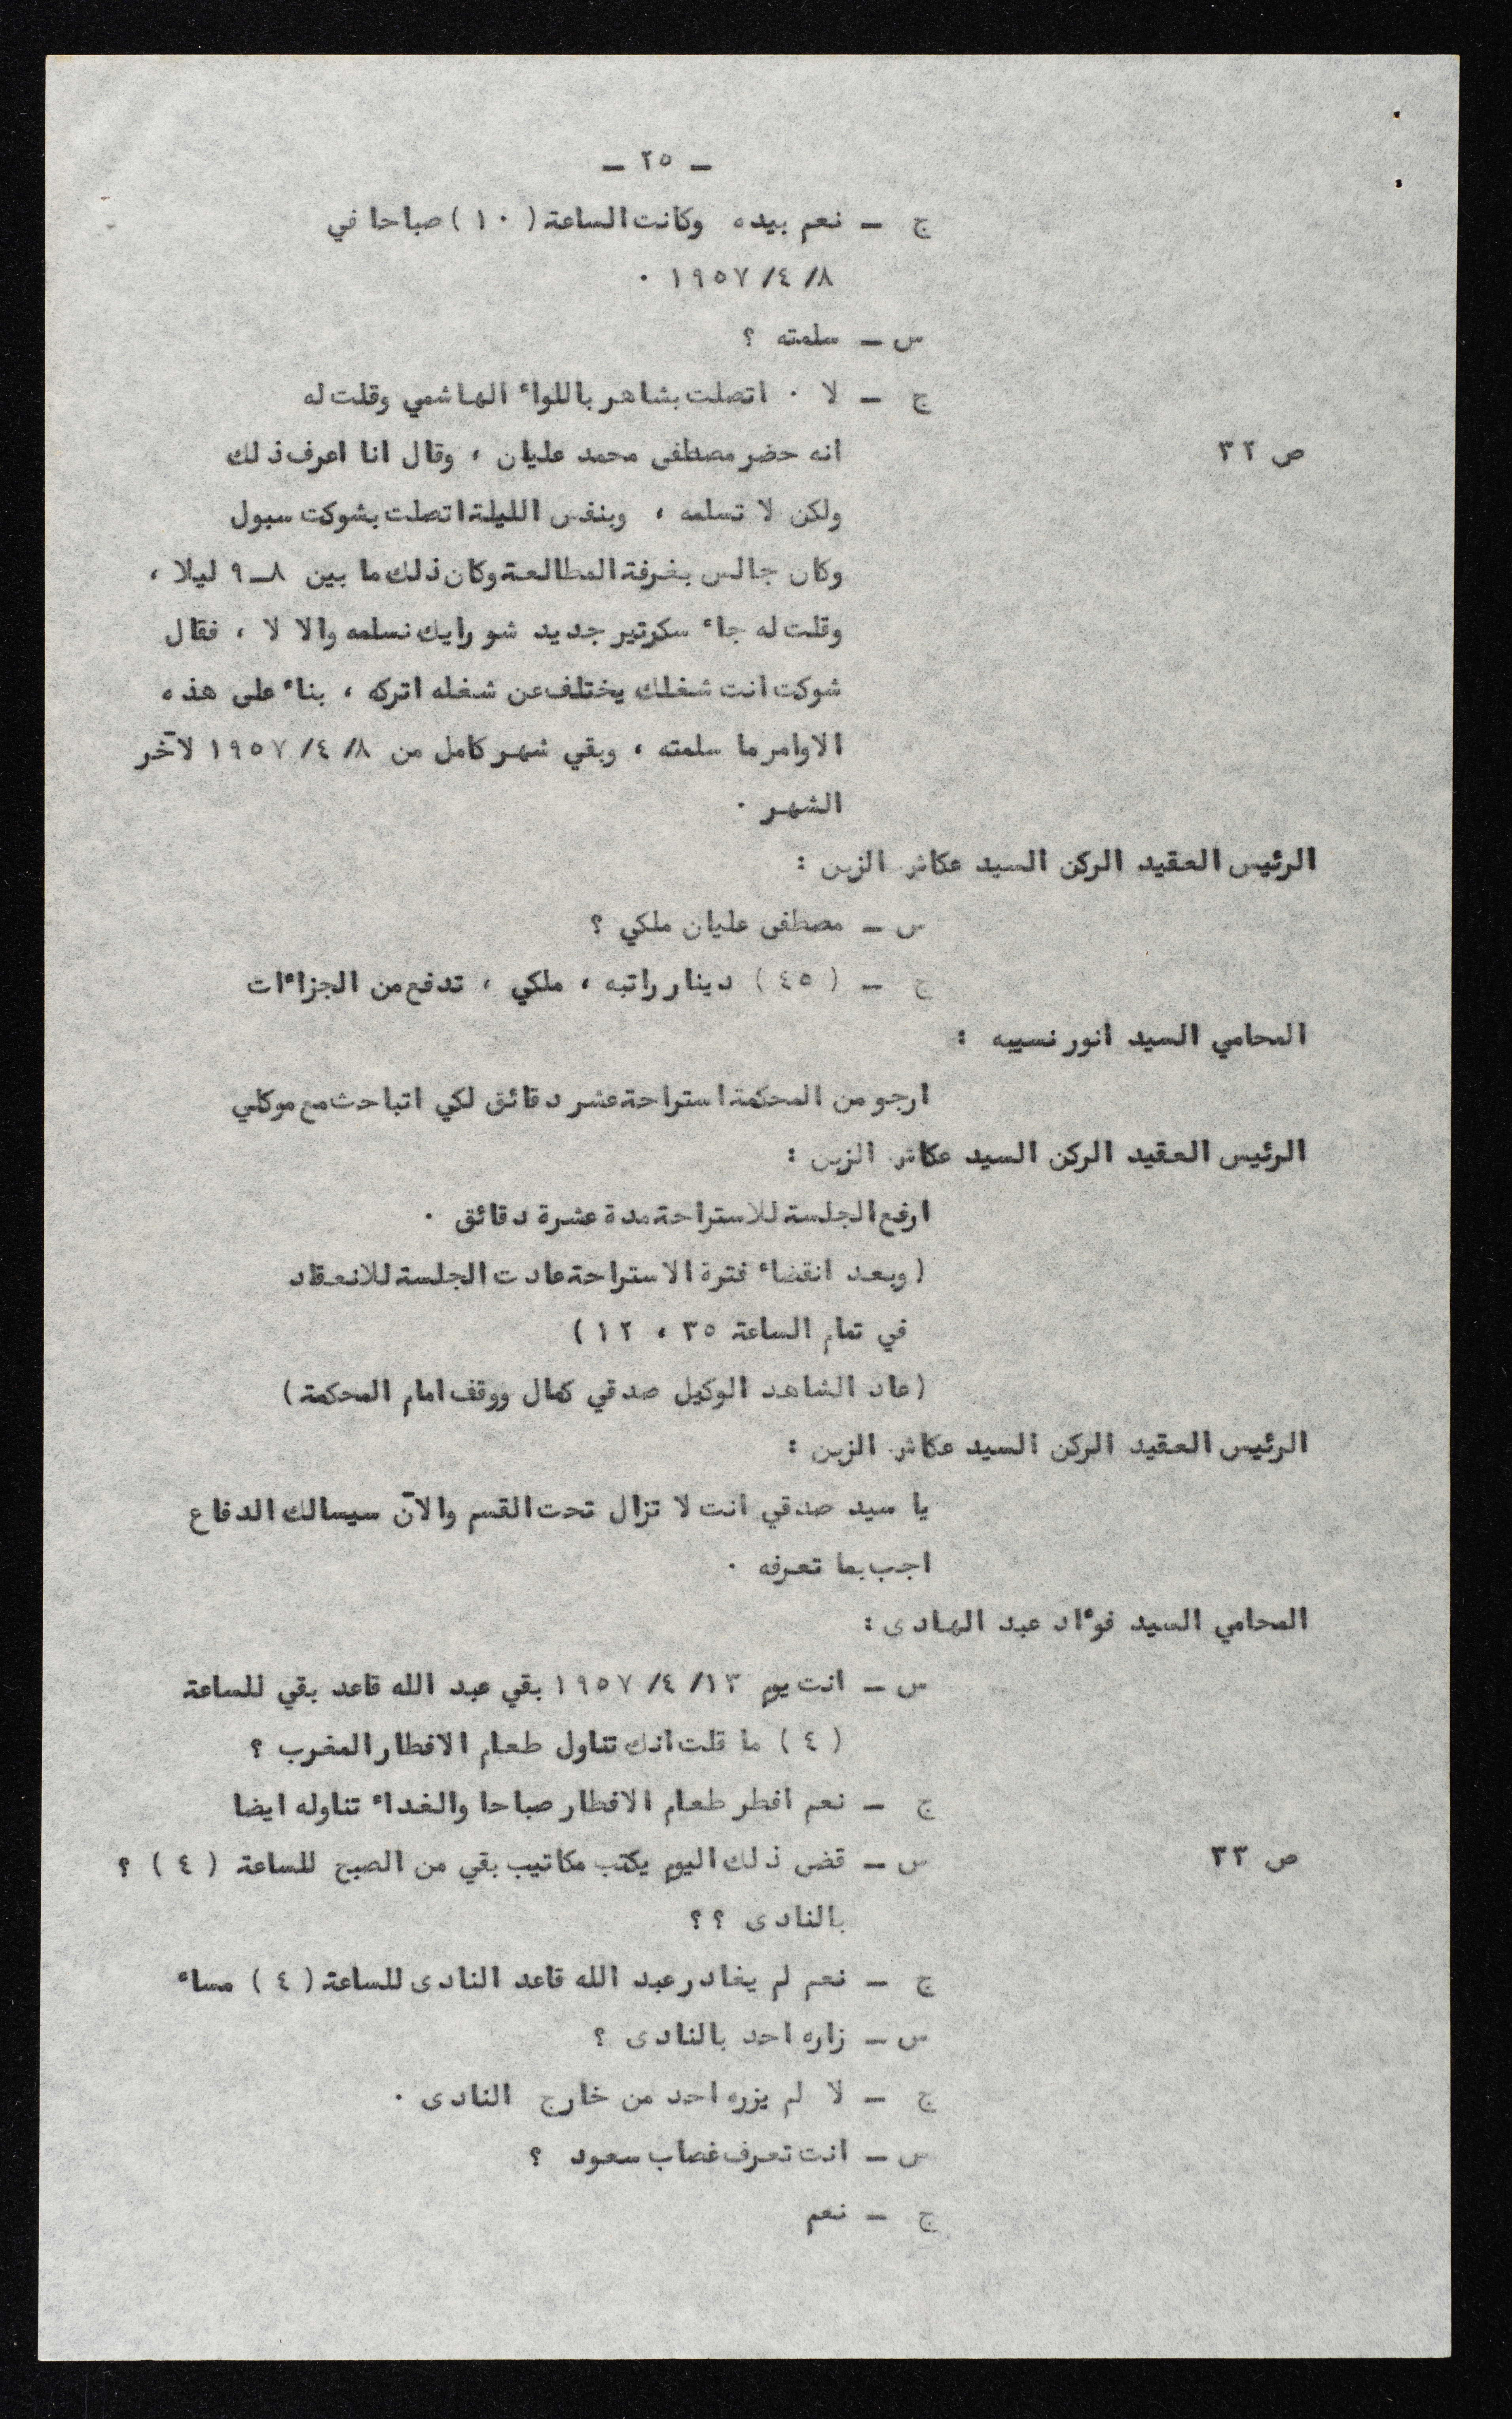 ـ ٢٥ ـ
ج ـ نعم بيده وكانت الساعة (١٠) صباحا في
٨/ ٤/ ١٩٥٧ ٠
س ـ سلمته ؟
ج ـ لا ٠ اتصلت بشاهر باللواء الهاشمي وقلت له
ص ٣٢ انه حضر مصطفى محمد عليان ، وقال انا اعرف ذلك
ولكن لا تسلمه ، وبنفس الليلة اتصلت بشوكت سبول
وكان جالس بغرفة المطالعة وكان ذلك ما بين ٨ـ٩ ليلا ،
وقلت له جاء سكرتير جديد شو رايك نسلمه والا لا ، فقال
شوكت انت شغلك يختلف عن شغله اتركه ، بناء على هذه
الاوامر ما سلمته ، وبقي شهر كامل من ٨/ ٤/ ١٩٥٧ لآخر
الشهر ٠
الرئيس العقيد الركن السيد عكاش الزبن :
س ـ مصطفى عليان ملكي ؟
ج ـ (٤٥) دينار راتبه ، ملكي ، تدفع من الجزاءات
المحامي السيد انور نسيبه :
ارجو من المحكمة استراحة عشر دقائق لكي اتباحث مع موكلي
الرئيس العقيد الركن السيد عكاش الزبن :
ارفع الجلسة للاستراحة مدة عشرة دقائق ٠
(وبعد انقضاء فترة الاستراحة عادت الجلسة للانعقاد
في تمام الساعة ٣٥ ، ١٢)
(عاد الشاهد الوكيل صدقي كمال ووقف امام المحكمة)
الرئيس العقيد الركن السيد عكاش الزبن :
يا سيد صدقي انت لا تزال تحت القسم والآن سيسالك الدفاع
اجب بما تعرفه ٠
المحامي السيد فوءاد عبد الهادى :
س ـ انت يوم ١٣/ ٤/ ١٩٥٧ بقي عبد الله قاعد بقي للساعة
(٤) ما قلت انك تناول طعام الافطار المغرب ؟
ج ـ نعم افطر طعام الافطار صباحا والغداء تناوله ايضا
ص ٣٣ س ـ قضى ذلك اليوم يكتب مكاتيب بقي من الصبح للساعة (٤) ؟
بالنادى ؟ ؟
ج ـ نعم لم يغادر عبد الله قاعد النادى للساعة (٤) مساء
س ـ زاره احد بالنادى ؟
ج ـ لا لم يزره احد من خارج النادى ٠
س ـ انت تعرف غصاب سعود ؟
ج ـ نعم